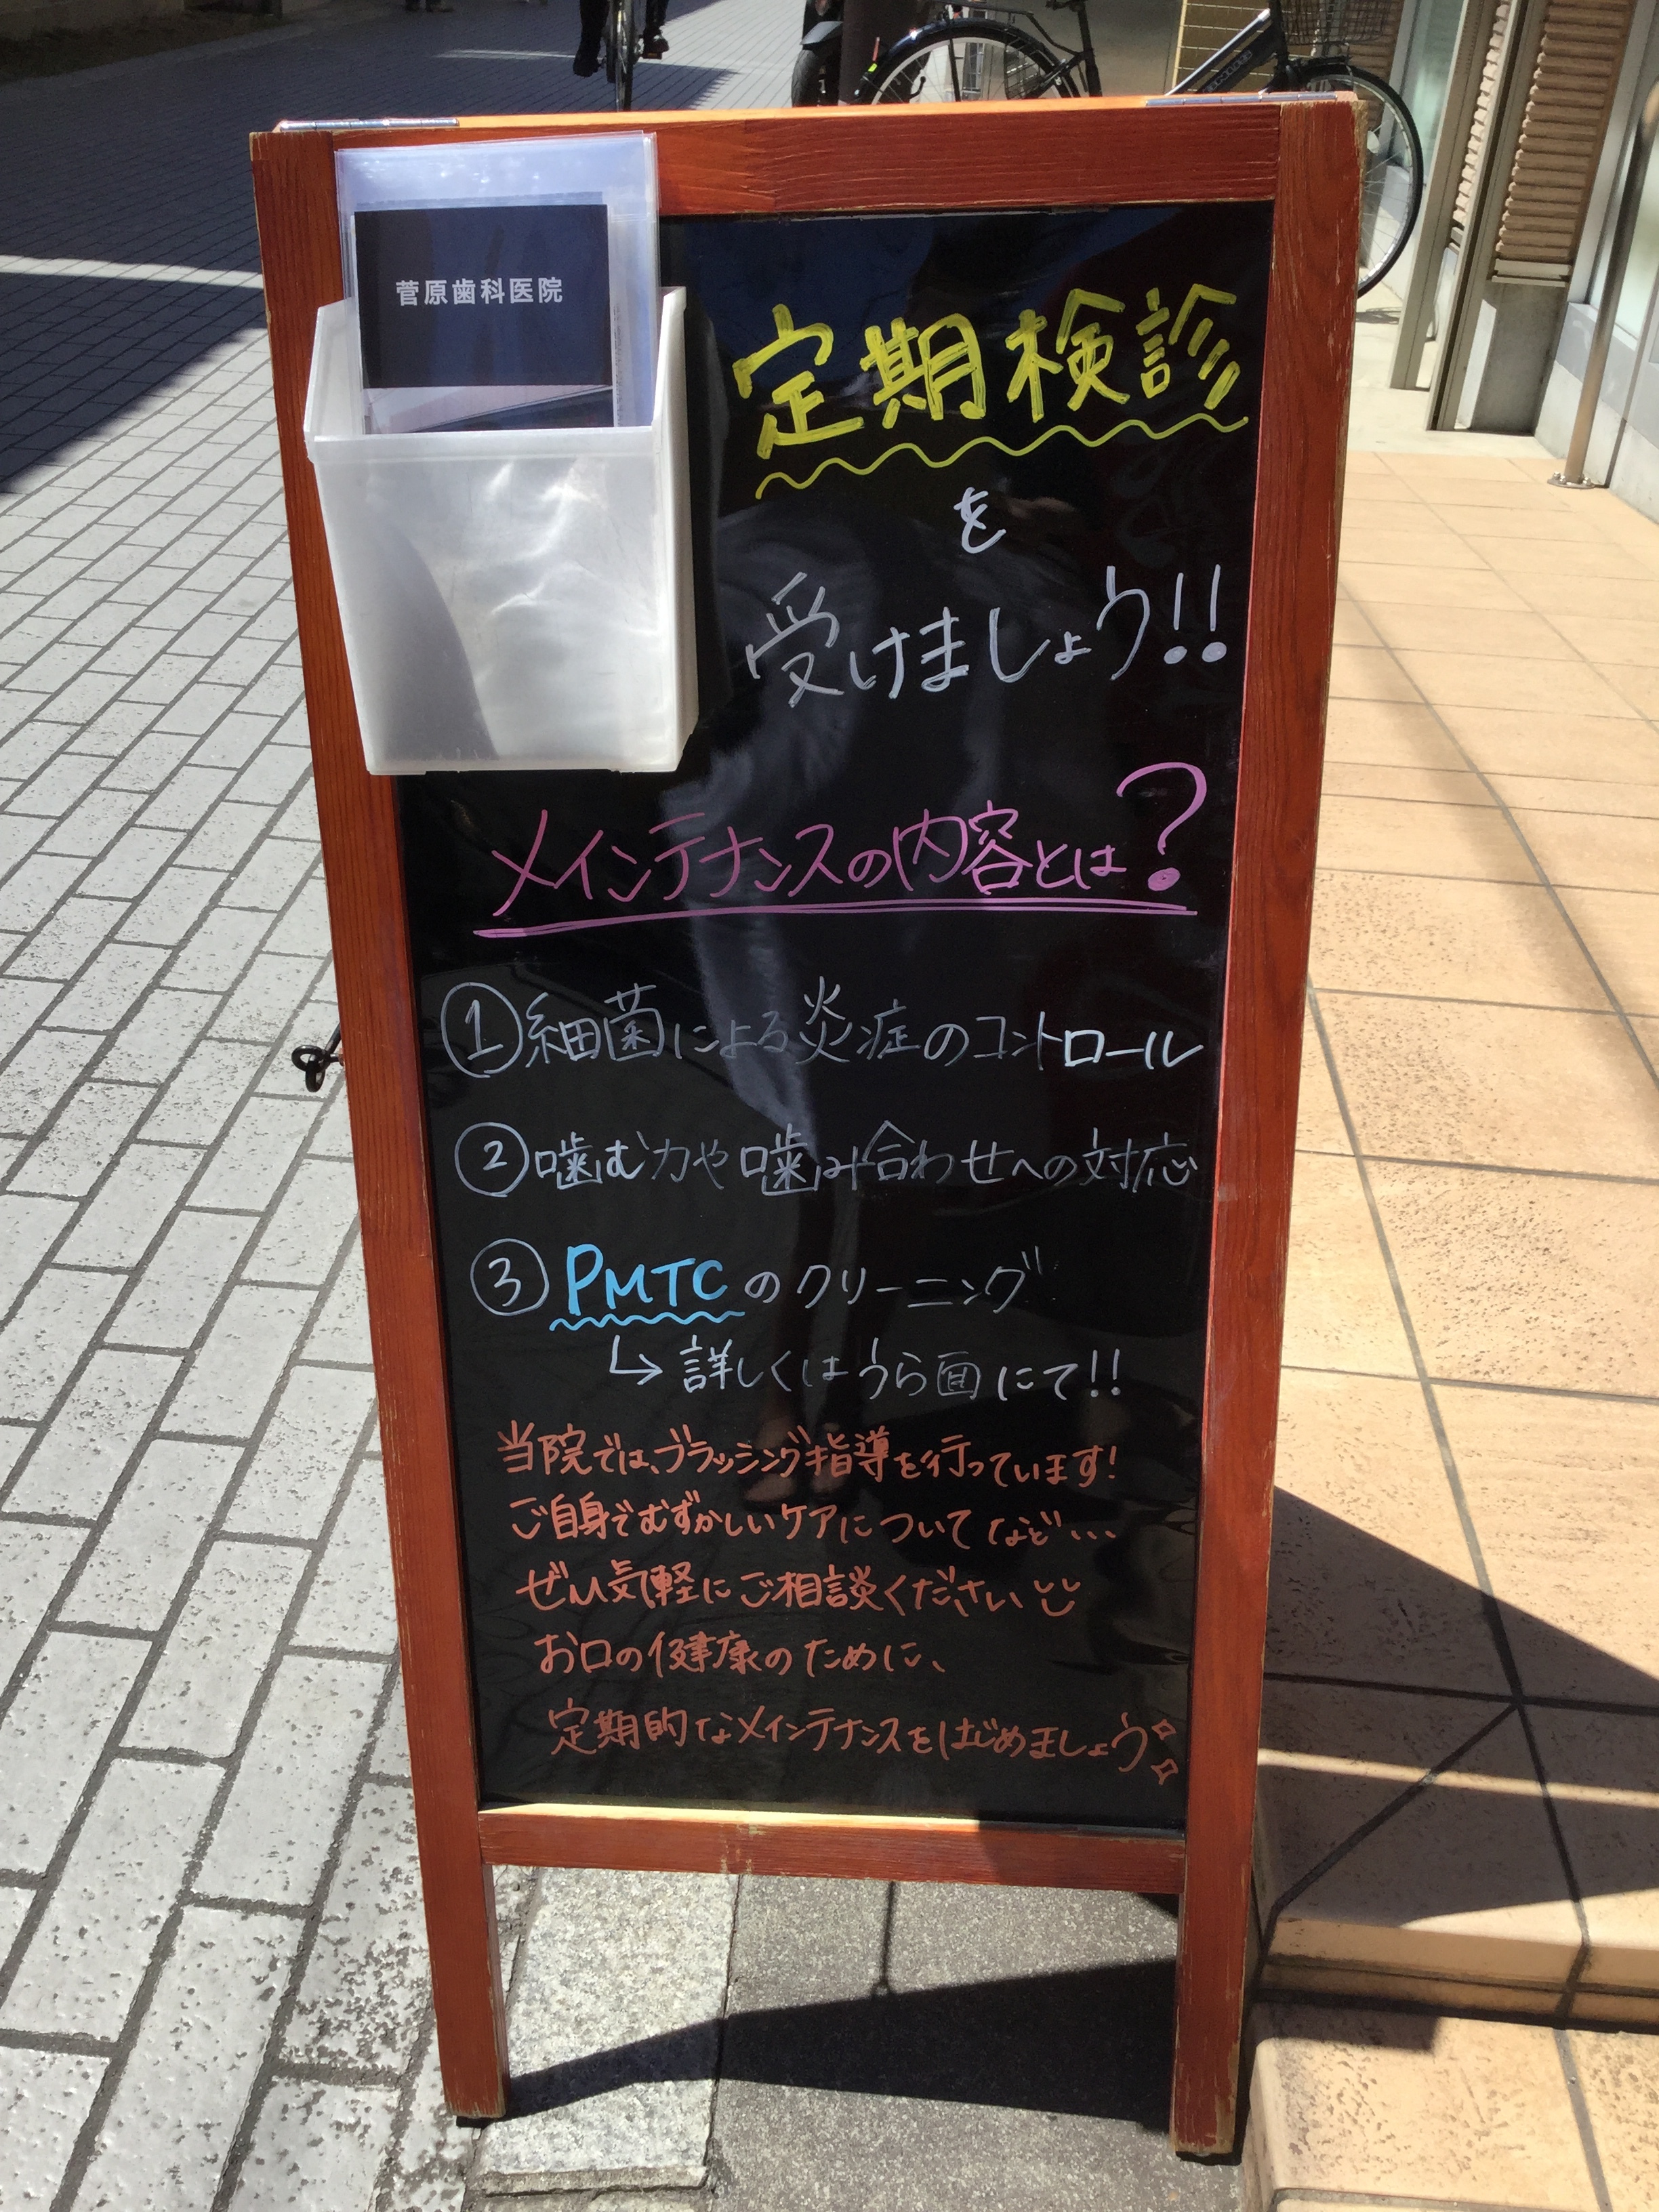 菅原歯科医院
定期検診
を
受けましょう!!
メインテナンスの内容とは?
①細菌による炎症のコントロール
②噛む力や噛み合わせへの対応
③PMTCのクリーニング
↳詳しくはうら面にて!!
当院では、ブラッシング指導を行っています!
ご自身でむずかしいケアについてなど・・・
ぜひ気軽にご相談ください
お口の健康のために、
定期的なメインテナンスをはじめましょう